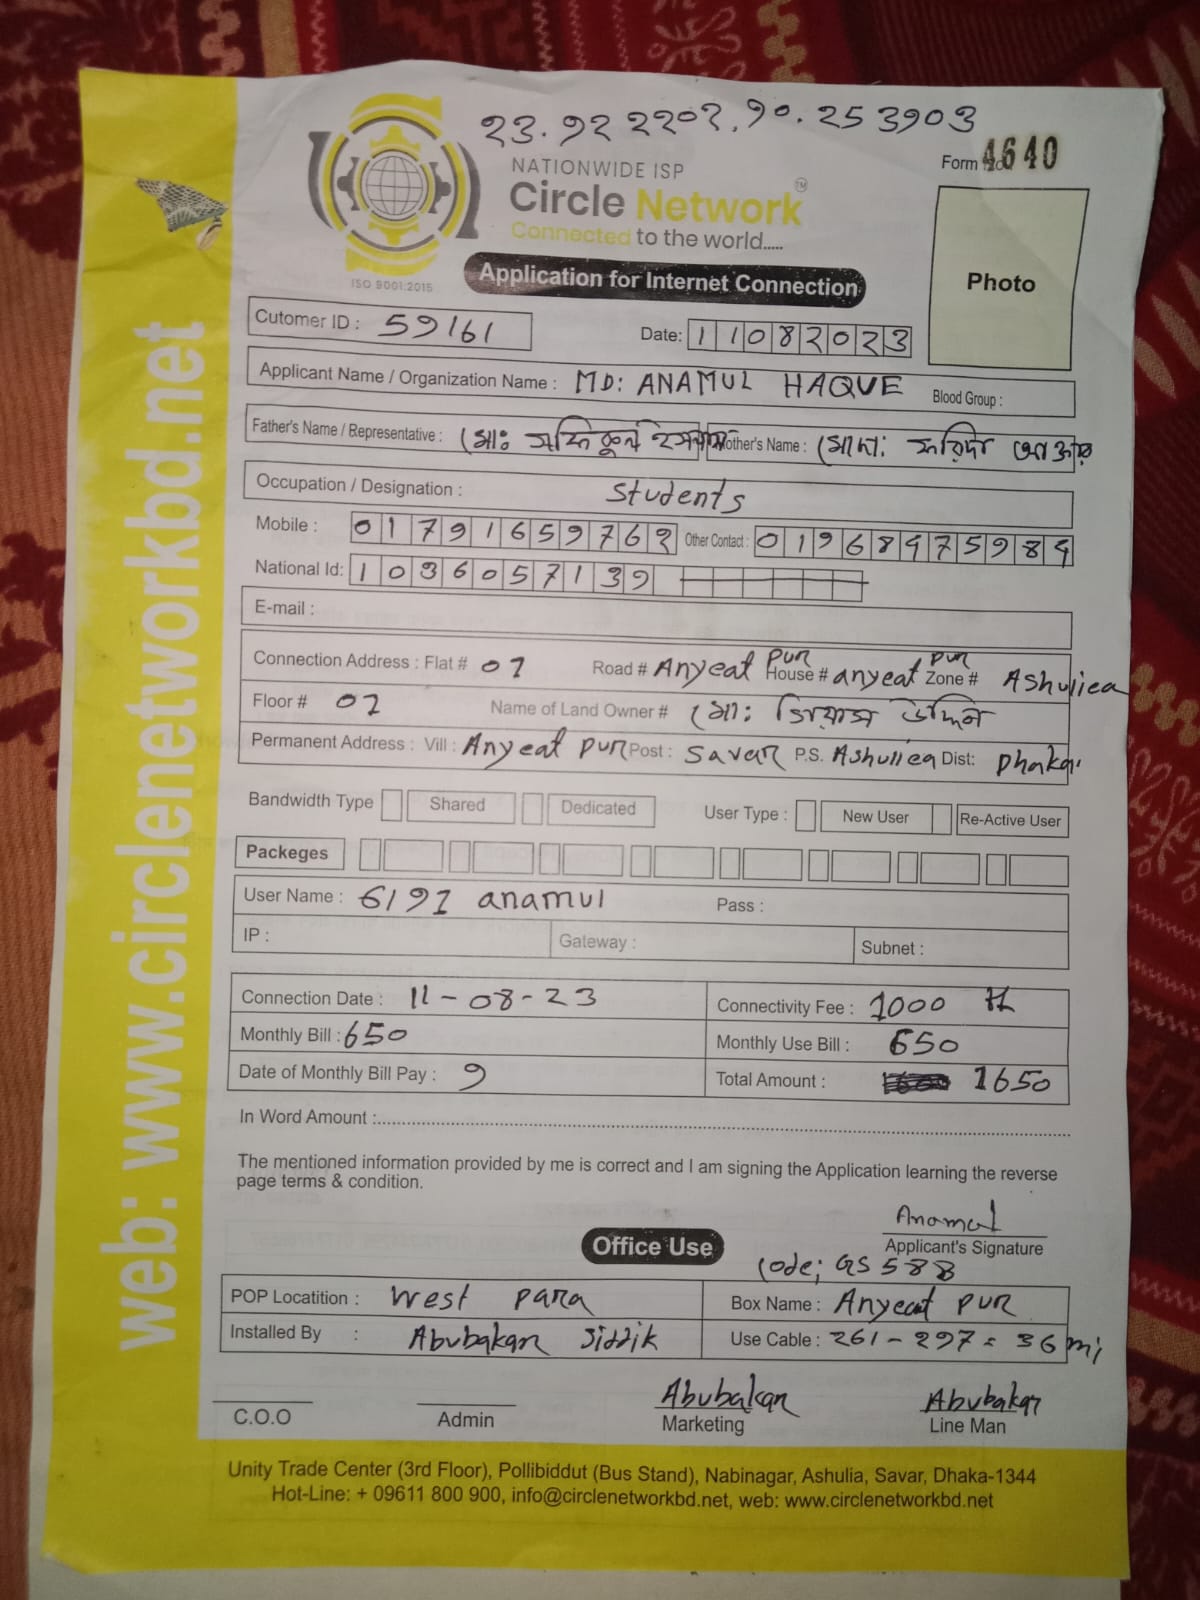 23.92 2202.90.253903
NATIONWIDE ISP
Form No 4640
Circle Network TM
Connected to the world.....
ISO 9001:2015
Application for Internet Connection
Photo
Cutomer ID : 59161 Date: 11082023
Applicant Name / Organization Name : MD: ANAMUL HAQUE Blood Group :
Father's Name / Representative : মোঃ সফিকুল ইসলাম Mother's Name : মোসা: ফরিদা আক্তার
Occupation / Designation : Students
Mobile : 01791659762 Other Contact :
National Id: 1036057139
E-mail :
Connection Address : Flat # 07 Road # Anyeat pur House # anyeat pur Zone # Ashuliea
Floor # 02 Name of Land Owner # মো: গিয়াস উদ্দিন
Permanent Address : Vill : Anyeat pur Post : Savar P.S. Ashuliea Dist: Dhaka
Bandwidth Type Shared Dedicated User Type : New User Re-Active User
Packeges
User Name : 6191 anamul Pass :
IP : Gateway : Subnet :
Connection Date : 11-08-23 Connectivity Fee : 1000 tk
Monthly Bill : 650 Monthly Use Bill : 650
Date of Monthly Bill Pay : 9 Total Amount : 1650
In Word Amount :
The mentioned information provided by me is correct and I am signing the Application learning the reverse
page terms & condition.
Anamul
Office Use Applicant's Signature
Code; GS 588
POP Locatition : West para Box Name : Anyeat pur
Installed By : Abubakar Siddik Use Cable : 261-297= 36 mi
Abubakar Abubakar
C.O.O Admin Marketing Line Man
Unity Trade Center (3rd Floor), Pollibiddut (Bus Stand), Nabinagar, Ashulia, Savar, Dhaka-1344
Hot-Line: + 09611 800 900, info@circlenetworkbd.net, web: www.circlenetworkbd.net
web: www.circlenetworkbd.net